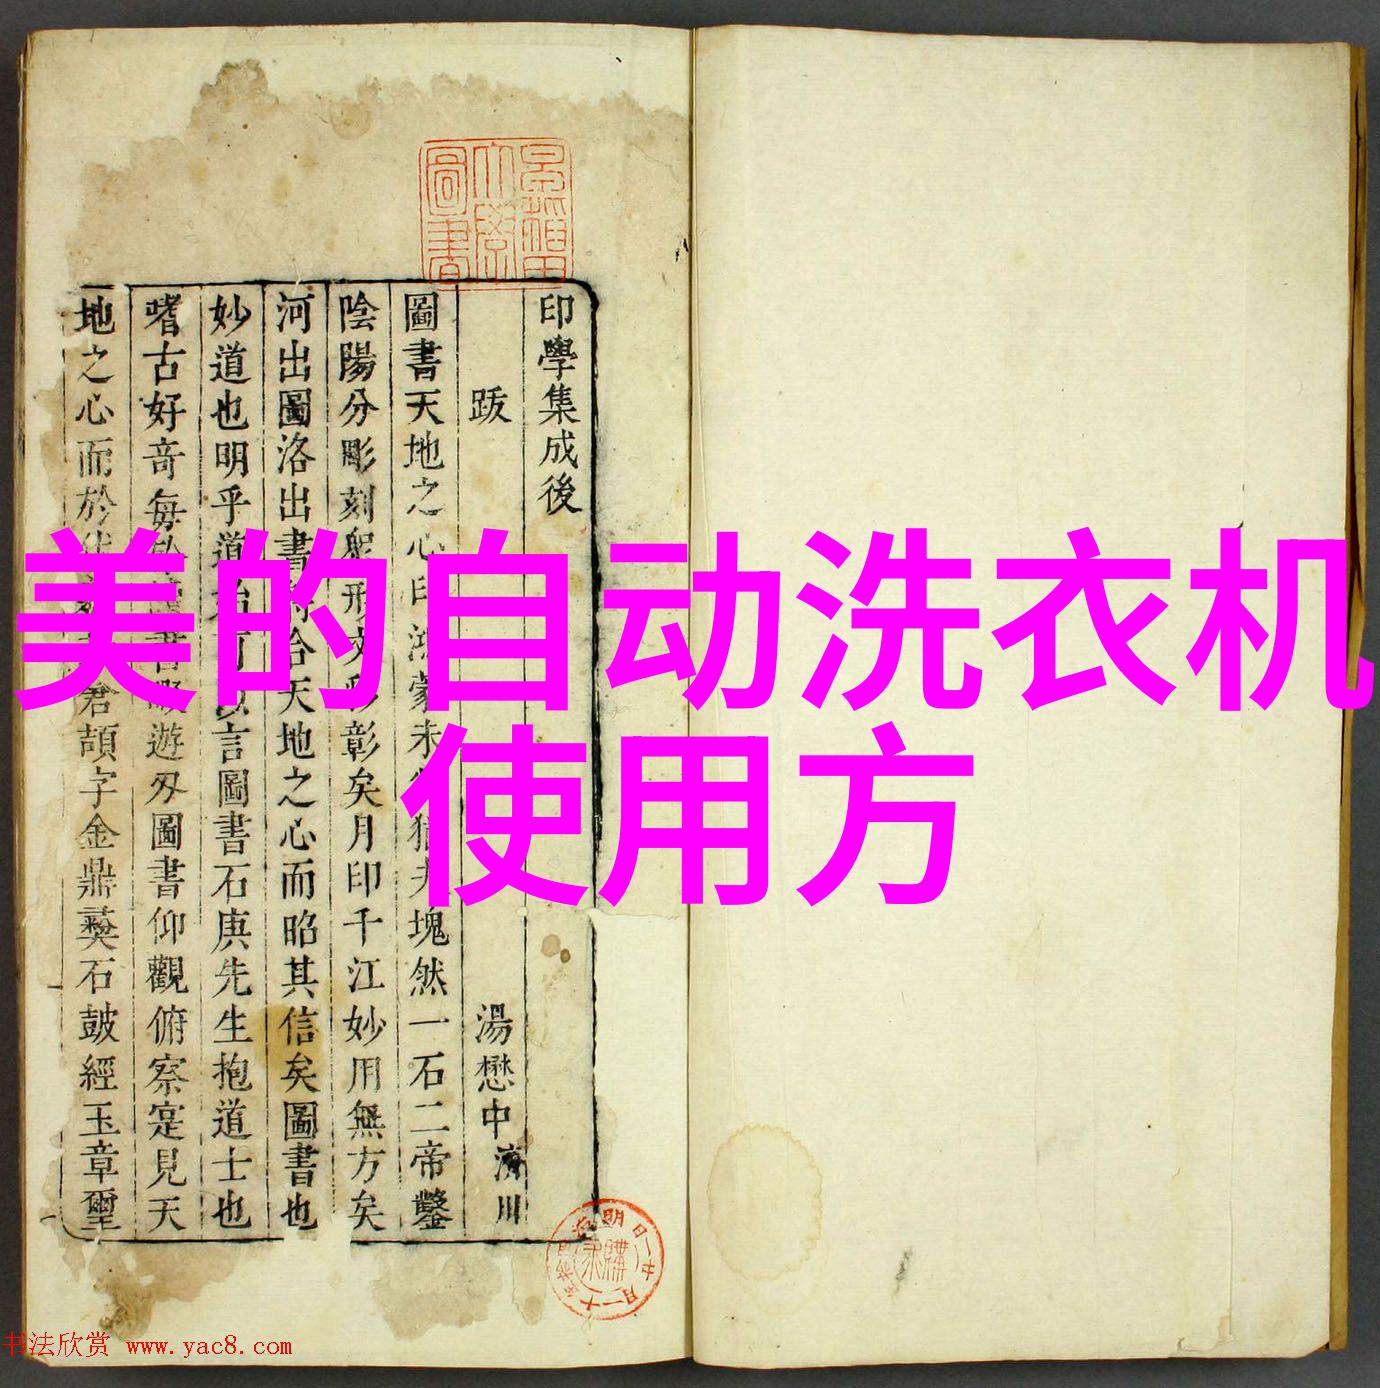 美的自动洗衣机
使用方
印學集成後
跋 湯懋中 濟川
圖書天地之心印鴻蒙未 猶夫塊然一石二帝鑿
陰陽分彫刻 形文 彰矣月印千江妙用無方矣
河出圖洛出書 合天地之心而昭其信矣圖書也
妙道也明乎道 可以言圖書石庚先生抱道士也
嗜古好奇每 遊刃圖書仰觀俯察寔見天
地之心而於 倉頡字金鼎彝石鼓經玉章璽
書法欣赏 www.yac8.com